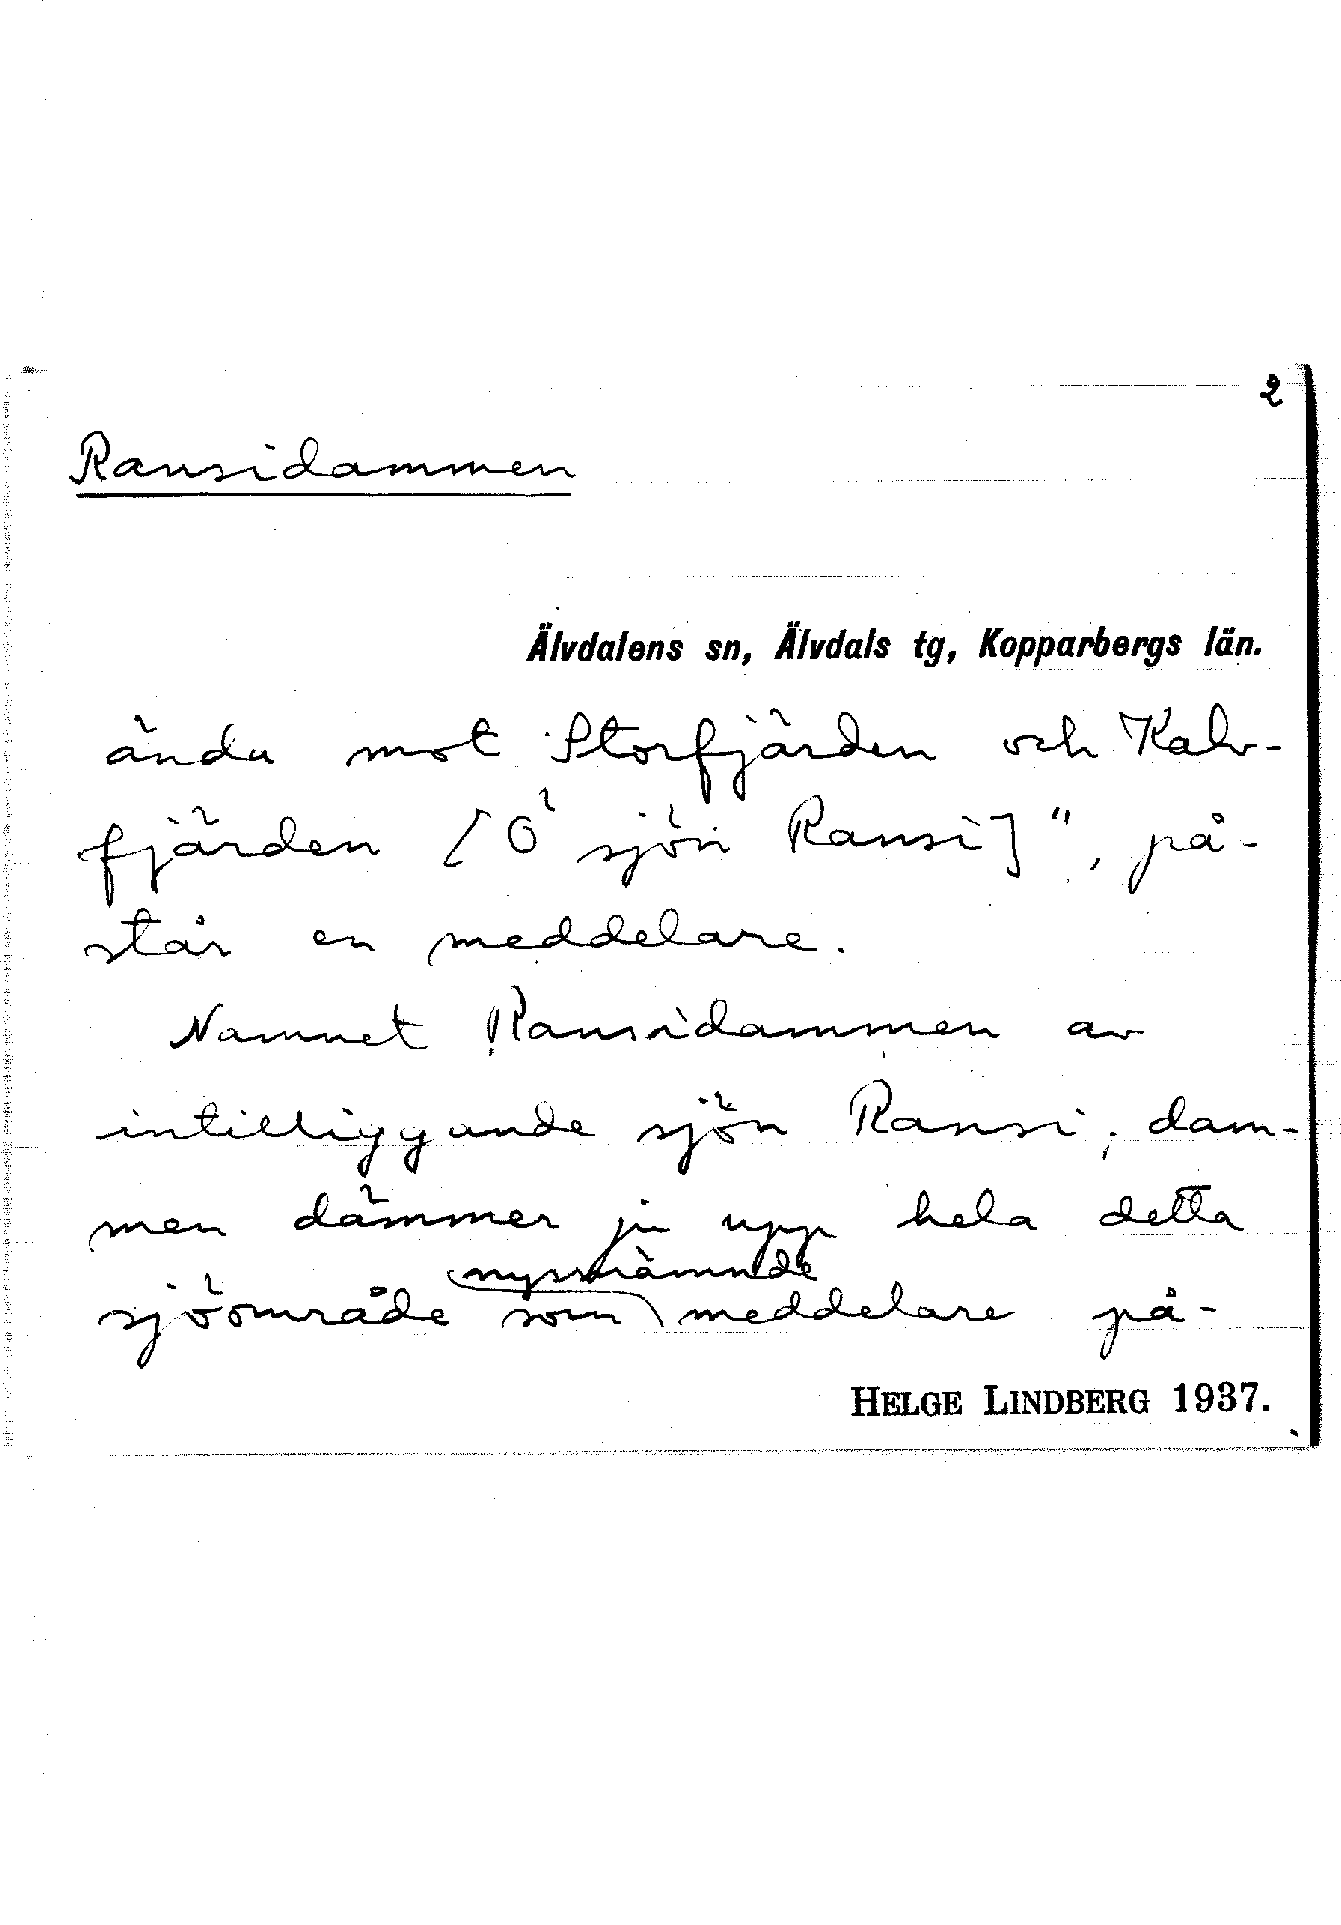 2
Ransidammen
Älvdalens sn, Älvdals tg, Kopparbergs län.
ända mot Storfjärden och Kalv-
fjärden [Ö sjön Ransi]", på-
står en meddelare.
Namnet Ransidammen av
intilliggande sjön Ransi; dam-
men dämmer ju upp hela detta
nyssnämnde
sjöområde som meddelare på-
HELGE LINDBERG 1937.